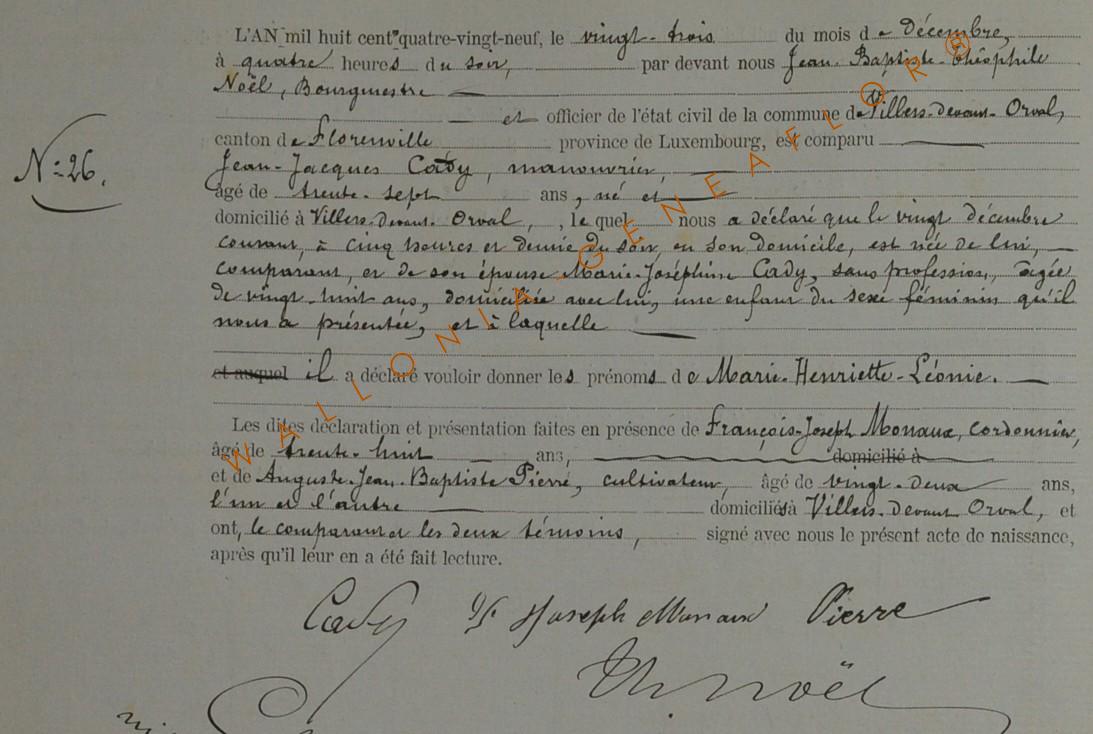 L'AN mil huit cent quatre-vingt-neuf, le vingt-trois du mois de décembre,
à quatre heures du soir, par devant nous Jean-Baptiste-Théophile
Noël, Bourgmestre
et officier de l'état civil de la commune de Villers-devant-Orval,
N: 26.
canton de Florenville province de Luxembourg, est comparu
Jean-Jacques Cady, manouvrier,
âgé de trente-sept ans, né et
domicilié à Villers-devant-Orval, , lequel nous a déclaré que le vingt décembre
courant, à cinq heures et demie du soir, en son domicile, est née de lui,
comparant, et de son épouse Marie-Joséphine Cady, sans profession, âgée
de vingt-huit ans, domiciliée avec lui, une enfant du sexe féminin qu'il
nous a présentée, et à laquelle
et auquel il a déclaré vouloir donner les prénoms de Marie-Henriette-Léonie.
Les dites déclaration et présentation faites en présence de François-Joseph Monaux, cordonnier,
âgé de trente-huit ans, domicilié à
et de Auguste-Jean-Baptiste Pierre, cultivateur, âgé de vingt-deux ans,
l'un et l'autre domiciliés à Villers-devant-Orval, et
ont, le comparant et les deux témoins, signé avec nous le présent acte de naissance,
après qu'il leur en a été fait lecture.
Cady JJ Joseph Monaux Pierre
Th. Noël
WALLONIA-GENEAFLOR®